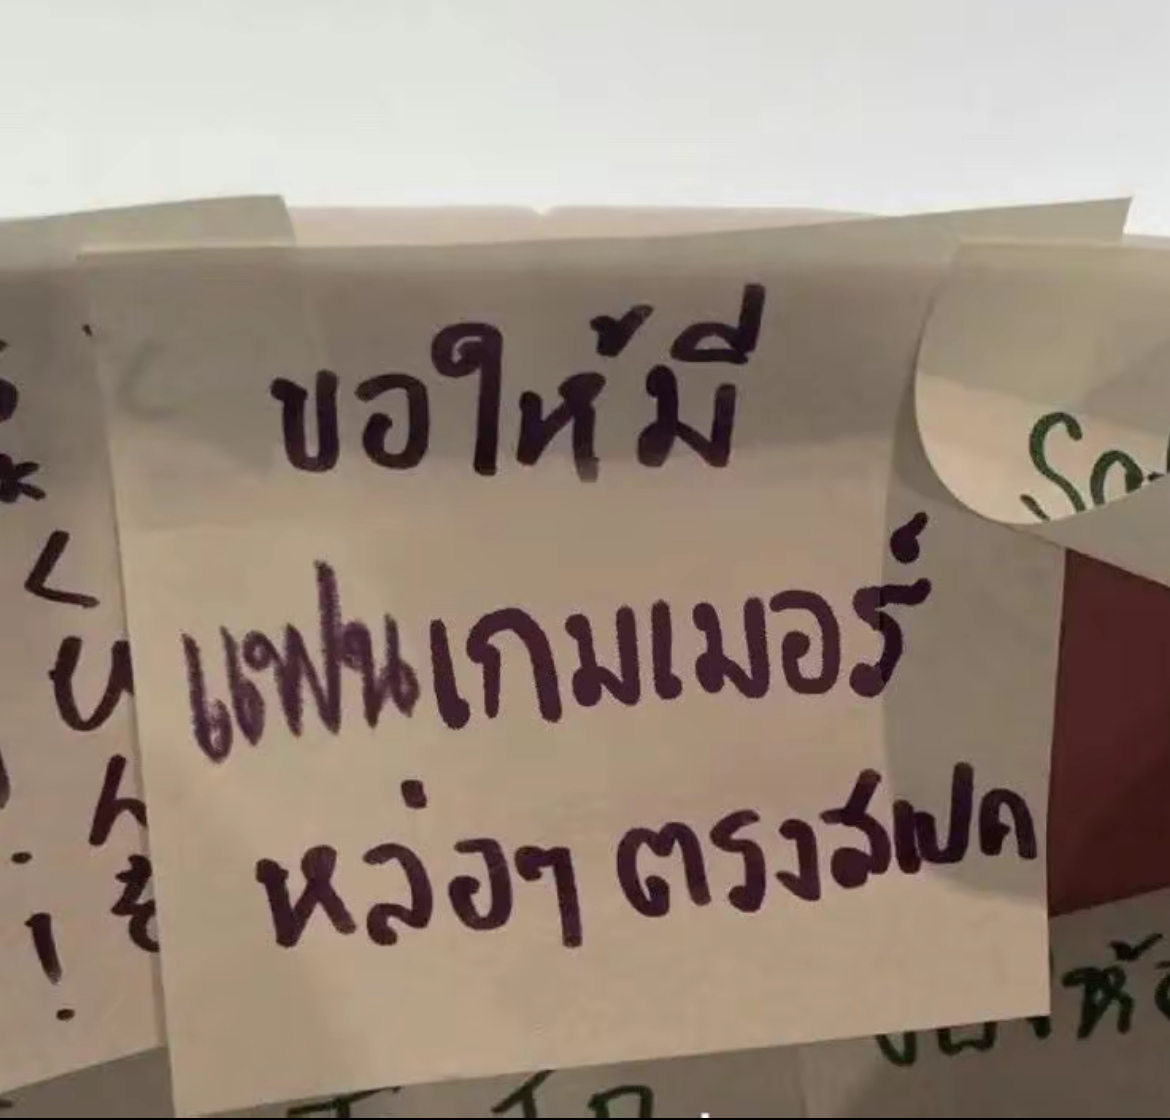 ขอให้มี
แฟนเกมเมอร์
หล่อๆ ตรงสเปค